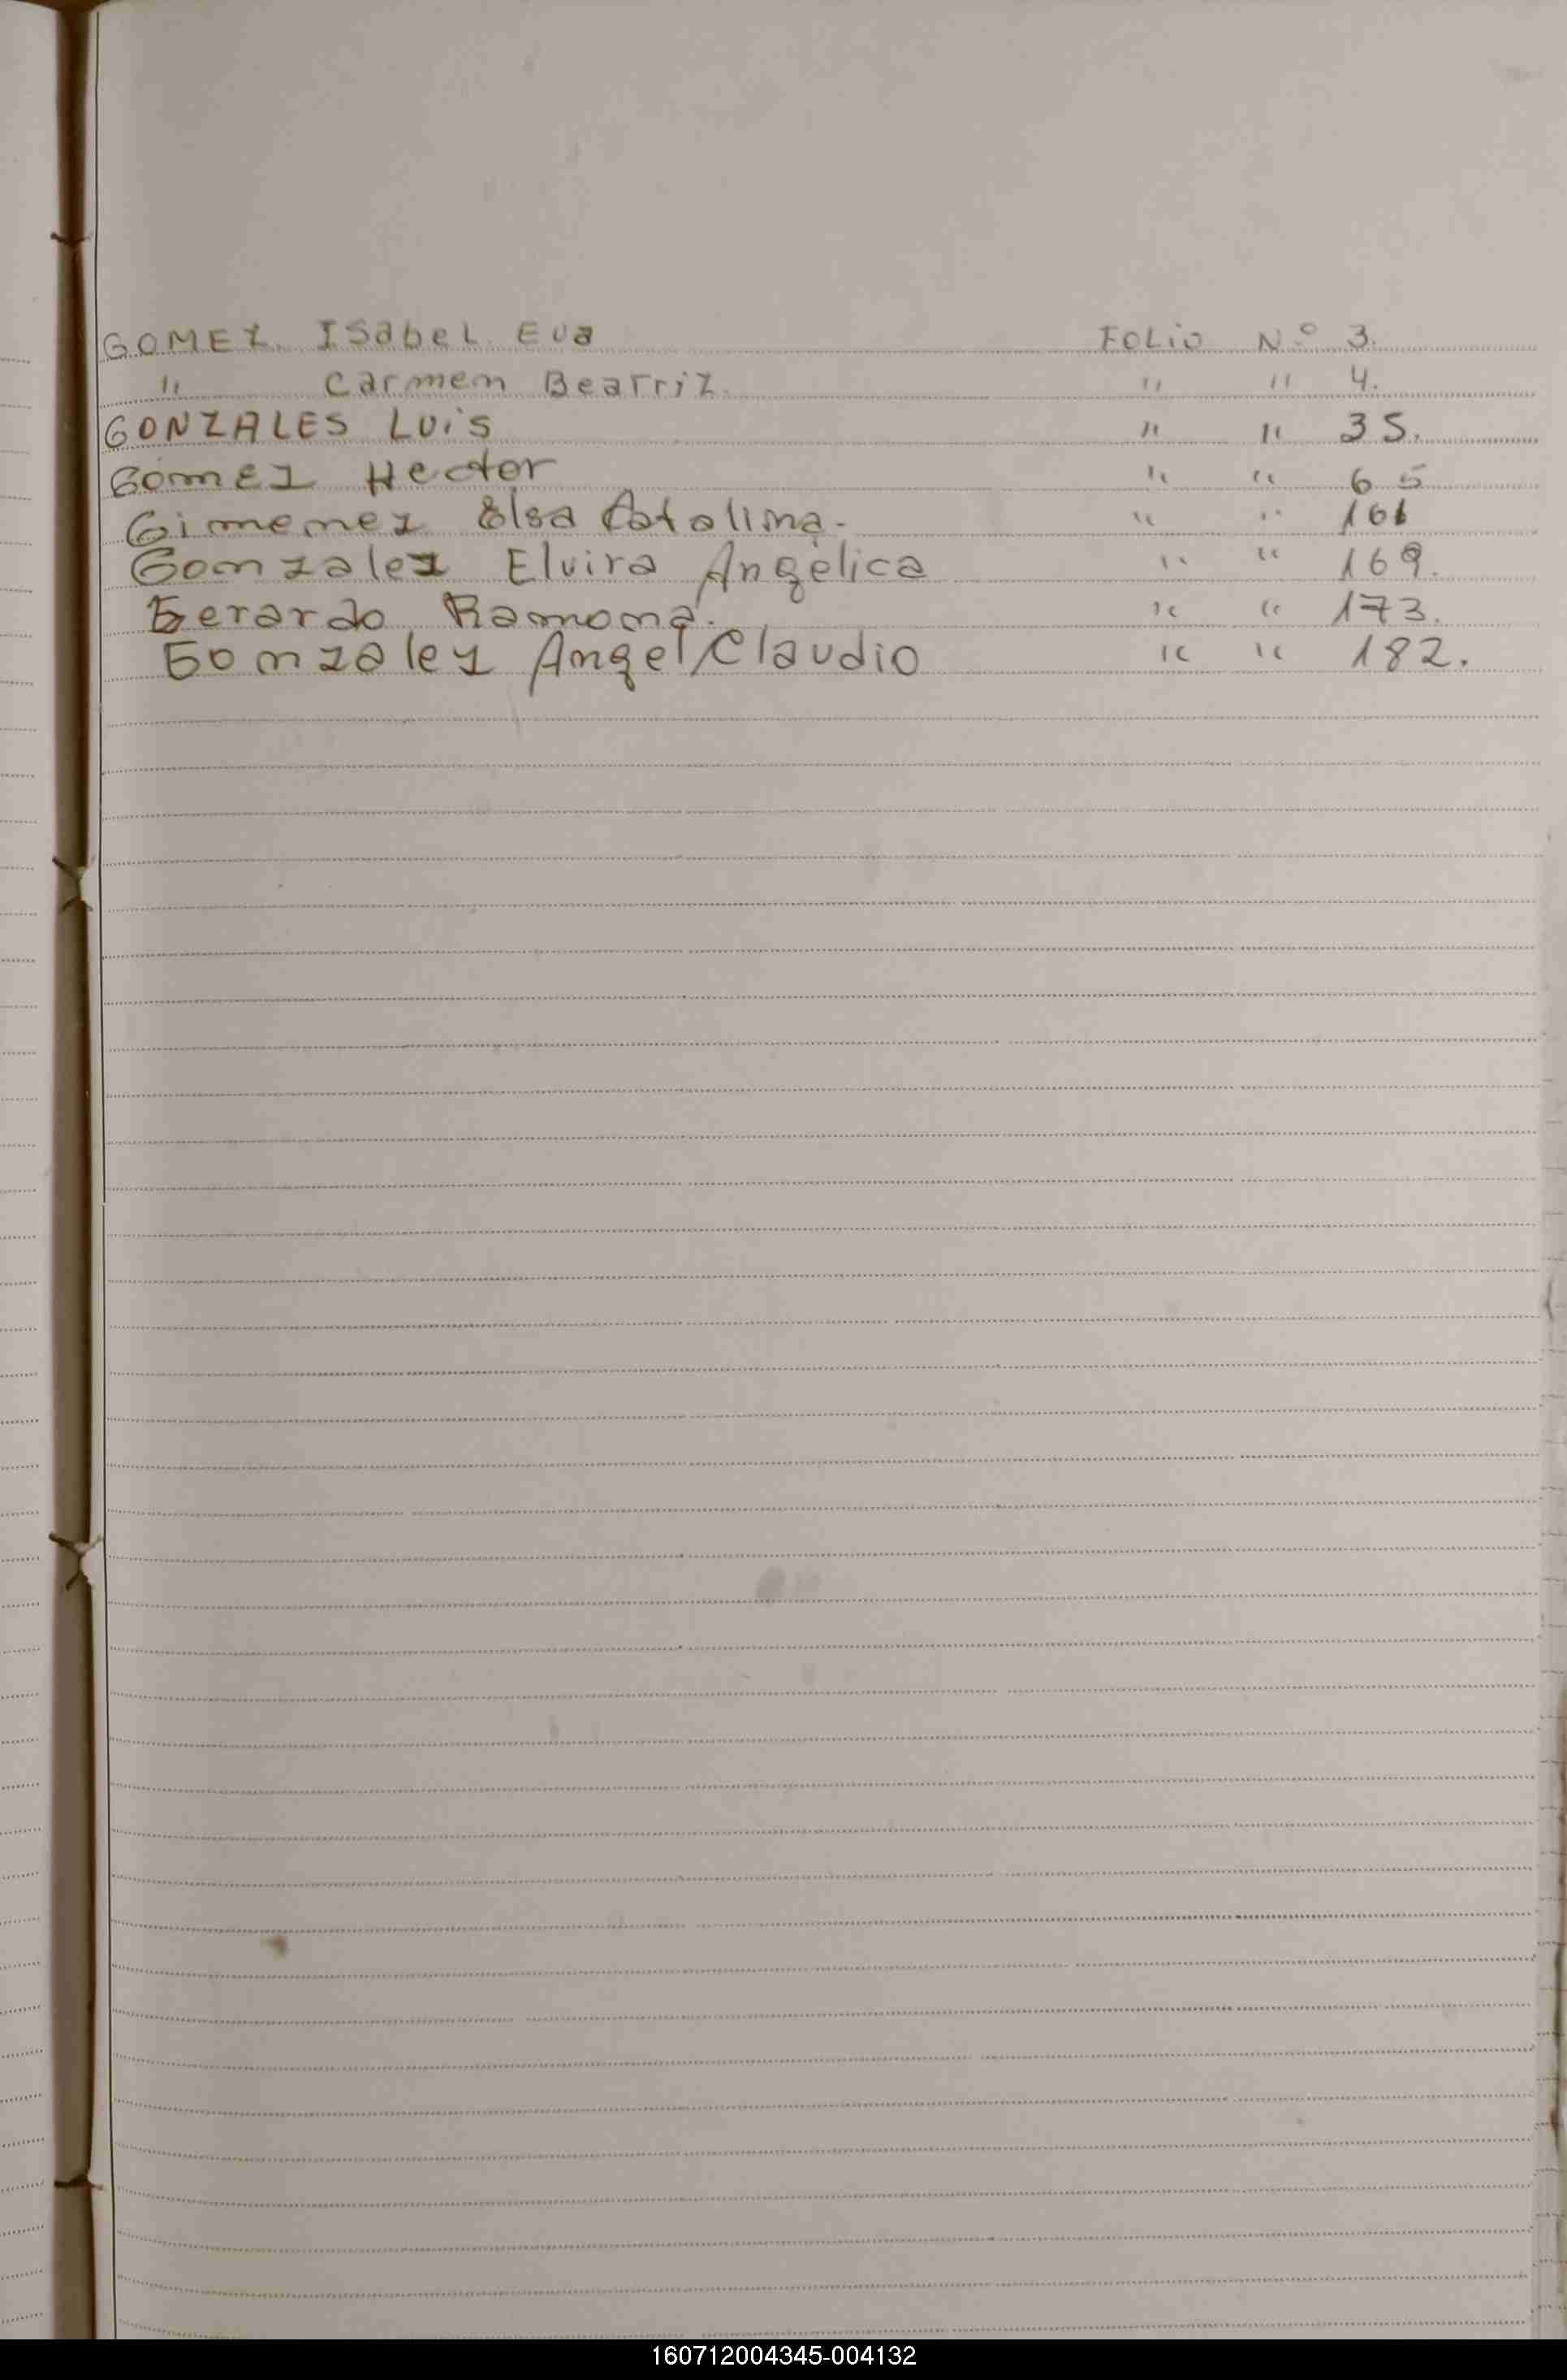 GOMEZ. ISabeL. Eva FOLio Nº 3.
" Carmen Beatriz. " " 4.
GONZALES LUis " " 35.
Gómez Hector " " 65
Gimenez Elsa Catalina. " " 161
Gonzalez Elvira Angélica " " 169.
Gerardo Ramona. " " 173.
Gonzalez Angel Claudio " " 182.
160712004345-004132